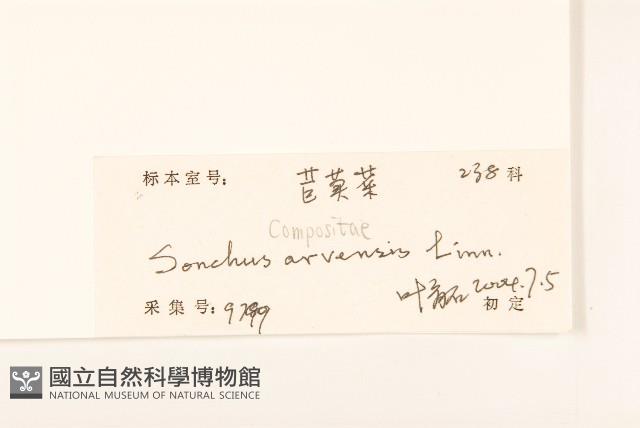 标本室号: 苣荬菜 238科
Compositae
Sonchus arvensis Linn.
采集号: 叶 2004.7.5
初定
國立自然科學博物館
NATIONAL MUSEUM OF NATURAL SCIENCE